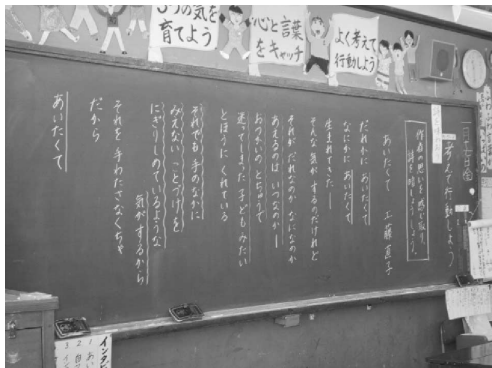 5つの気を
育てよう
心と言葉
をキャッチ
よく考えて
行動しよう
考えて行動しよう
作者の思いを感じ取り、
詩を暗しょうしよう。
あいたくて
工藤直子
だれかに あいたくて
なにかに あいたくて
生まれてきた―
そんな 気が するのだけれど
それが だれなのか なになのか
あえるのは いつなのか―
おつかいの とちゅうで
迷ってきた 子どもみたい
とほうに くれている
それでも 手のなかに
みえない ことづけを
にぎりしめているような
気がするから
それを 手わたさなくちゃ
だから
あいたくて
インタ
1 あい
2 自
3 イン